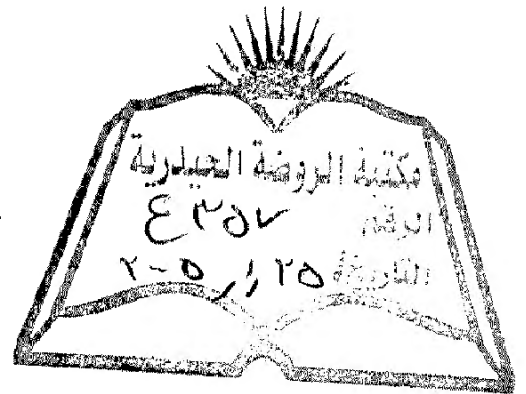 مكتبة الروضة الحيدرية
الرقم ٤٣٥٧
التاريخ ٢٥ ٢٠٠٥